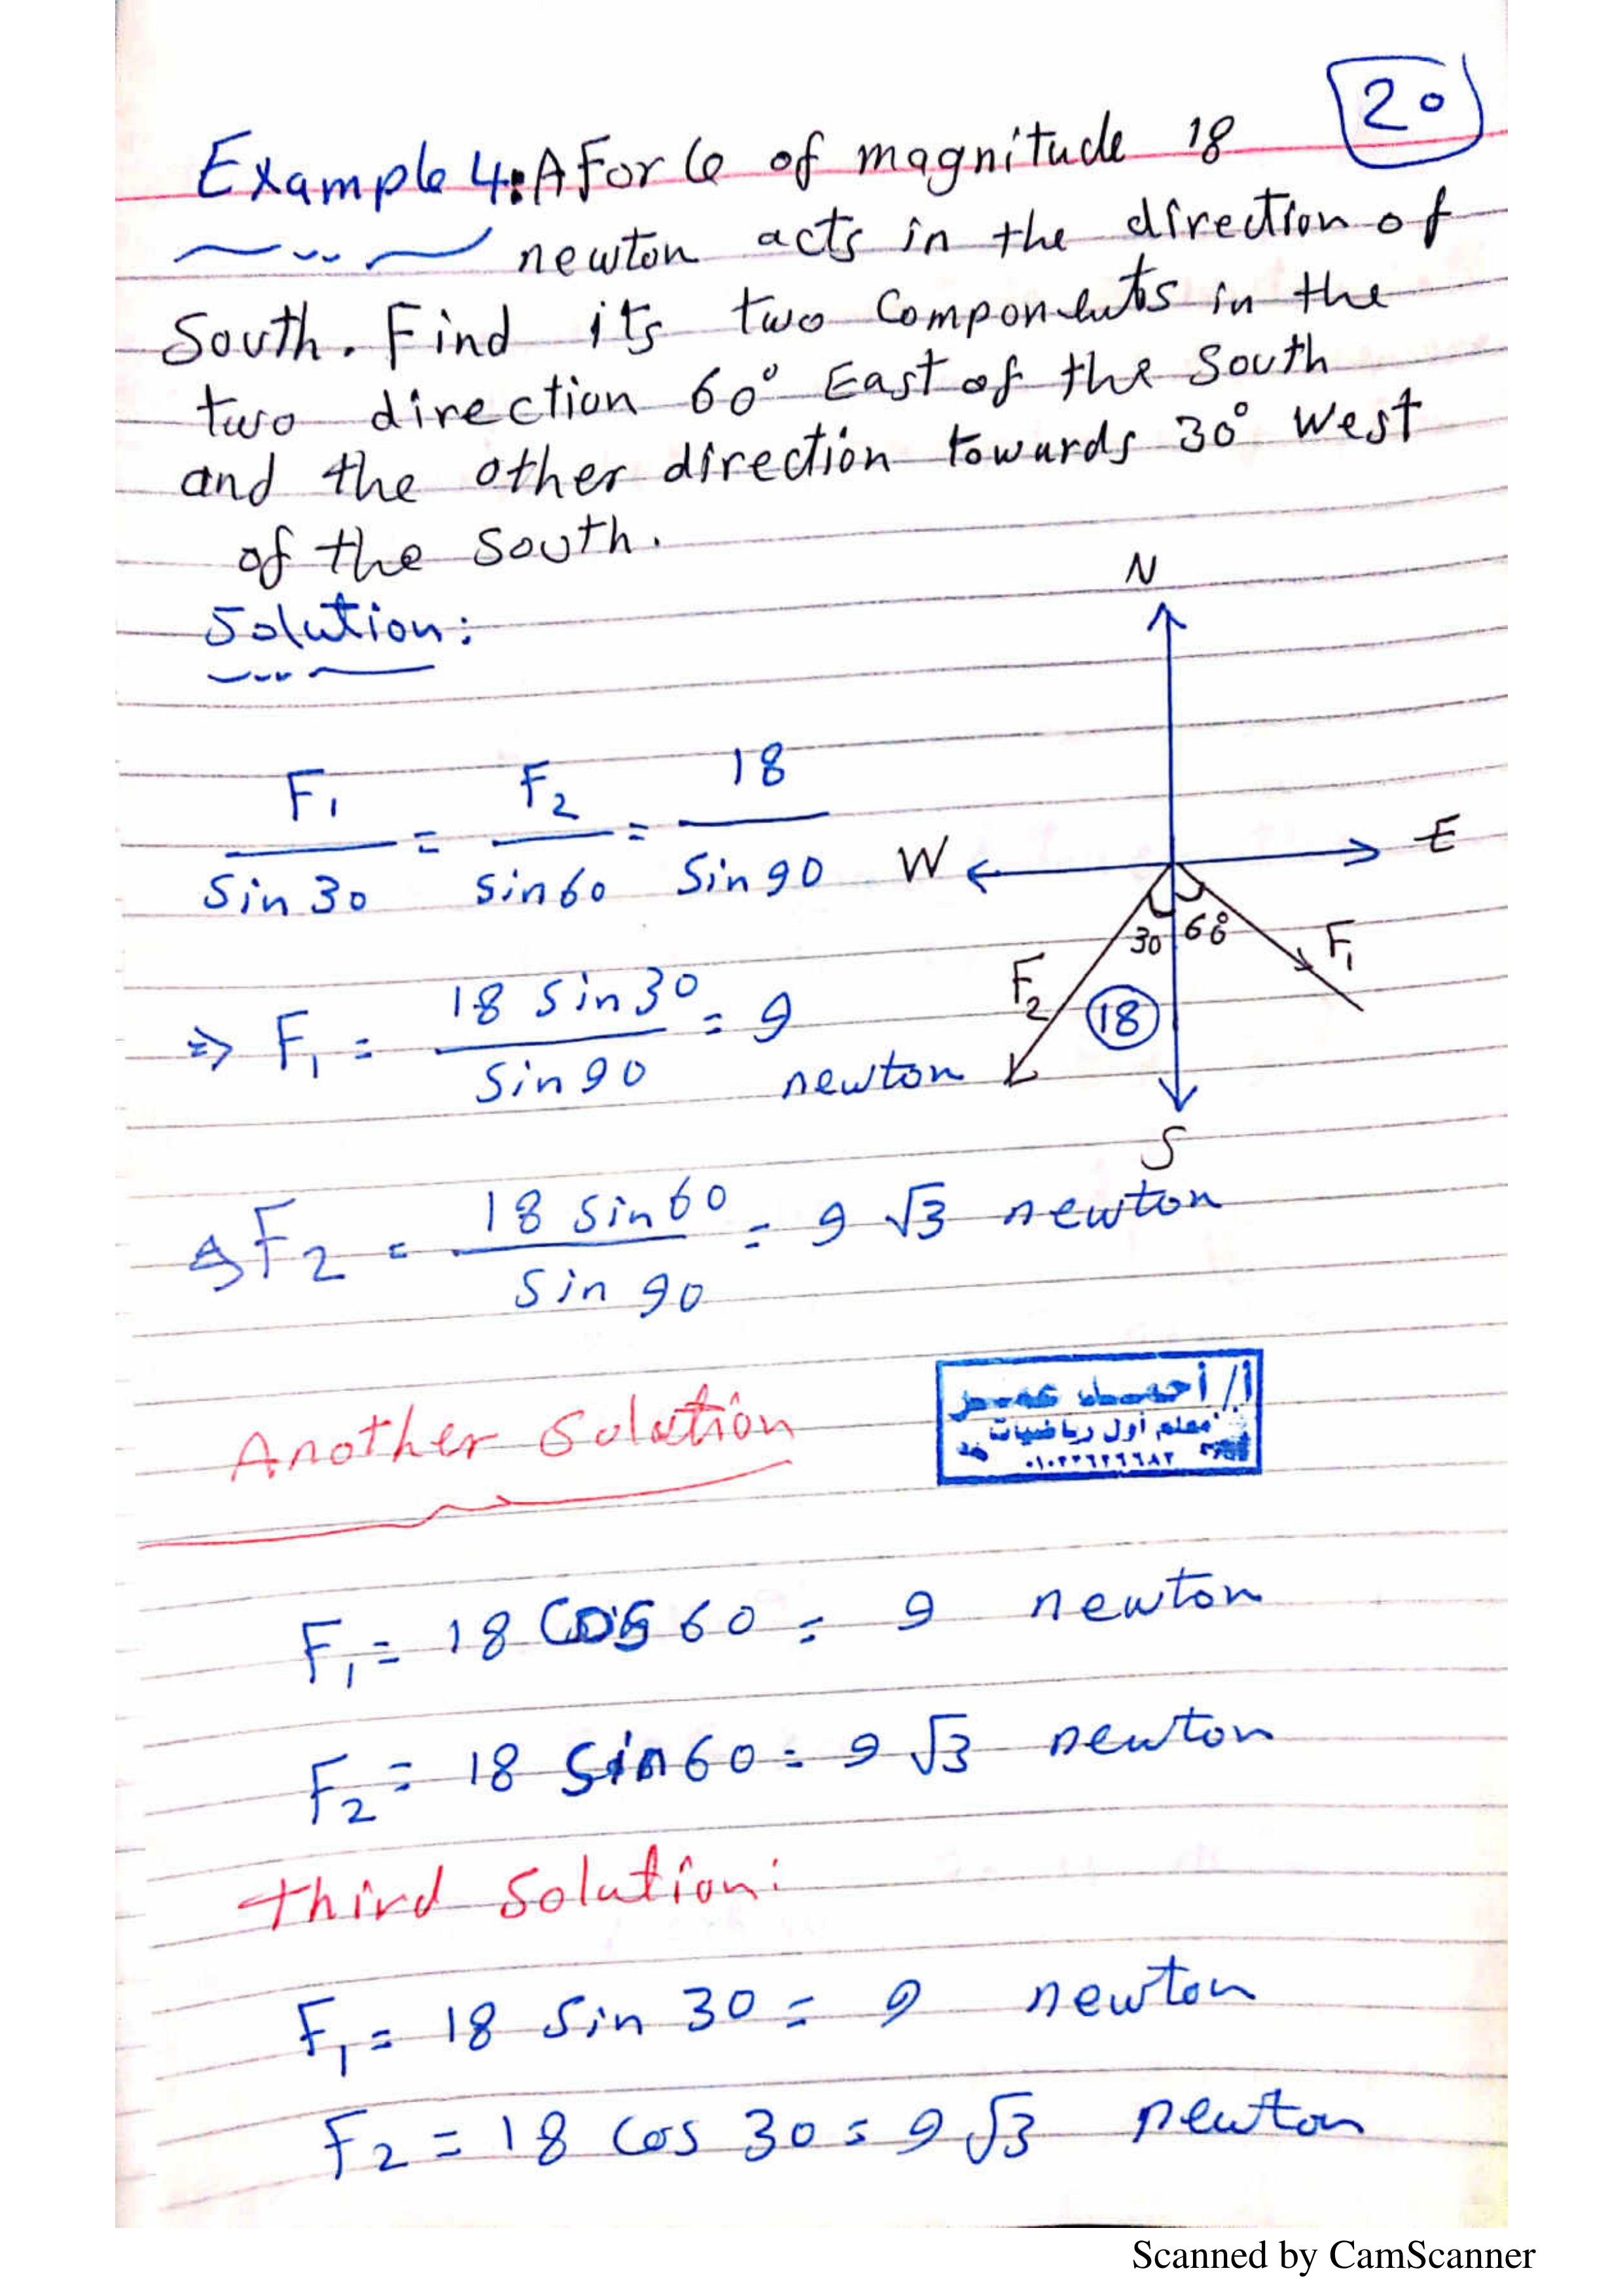 20
Example 4: A Force of magnitude 18
newton acts in the direction of
South. Find its two Components in the
two direction 60° East of the South
and the other direction towards 30° West
of the South.
Solution:
N
W
E
S
30
60°
F₁
F₂
18
F₁/Sin 30 = F₂/Sin 60 = 18/Sin 90
⇒ F₁ = 18 Sin 30/Sin 90 = 9 newton
F₂ = 18 Sin 60/Sin 90 = 9 √3 newton
Another Solution
أ/ أحمد عمر
معلم أول رياضيات
F₁ = 18 Cos 60 = 9 newton
F₂ = 18 Sin 60 = 9 √3 newton
third Solution:
F₁ = 18 Sin 30 = 9 newton
F₂ = 18 Cos 30 = 9 √3 newton
Scanned by CamScanner